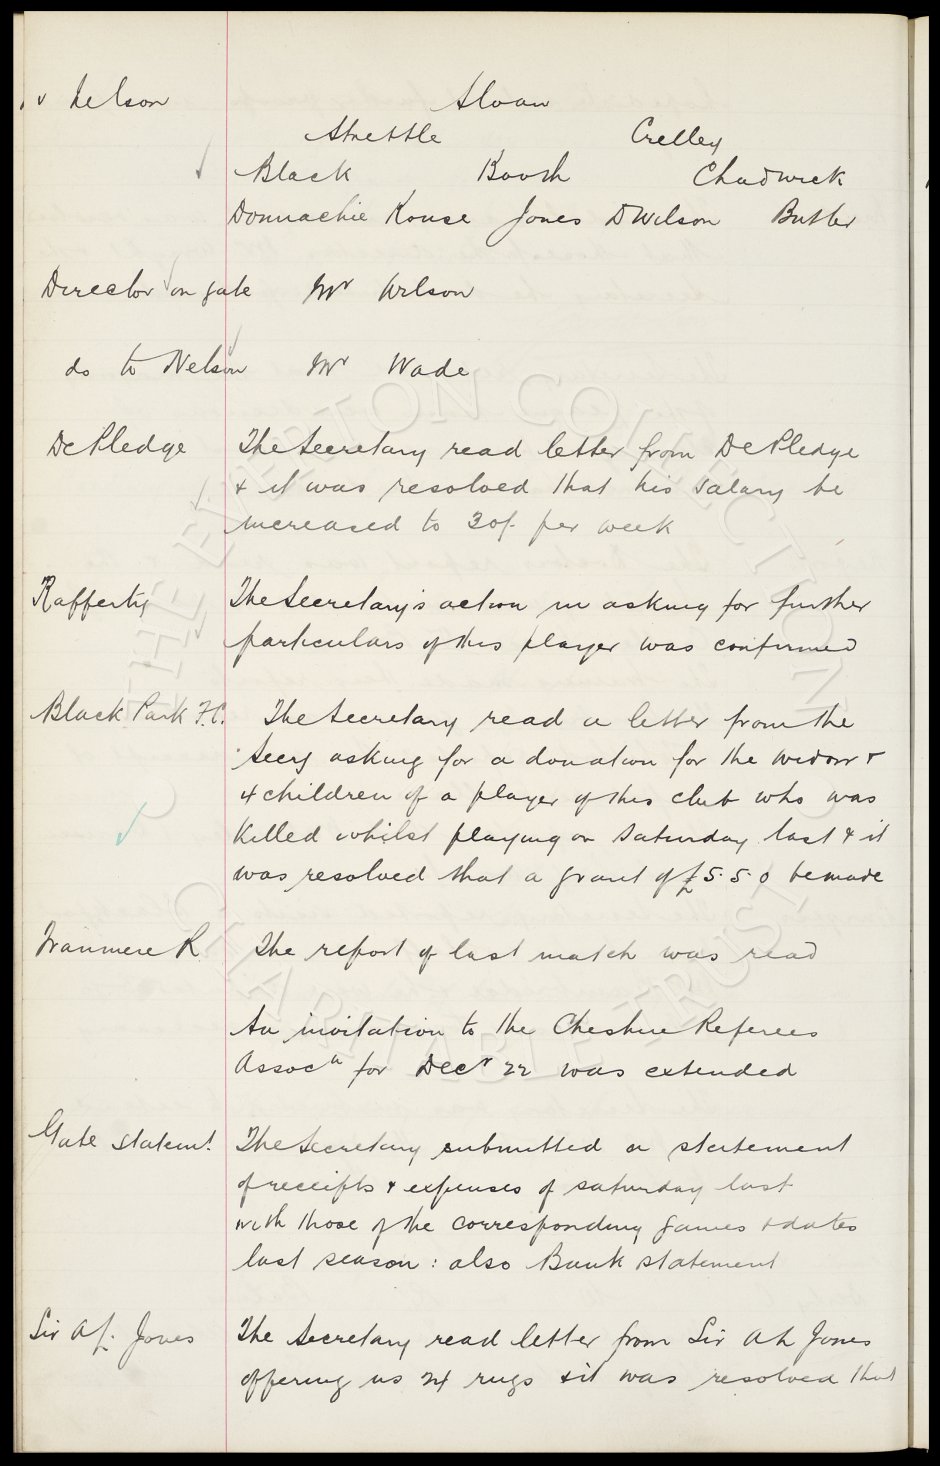 v Nelson Sloan
Strettle Crelley
Black Booth Chadwick
Donnachie Rouse Jones D Wilson Butler
Director on gate Mr Wilson
do to Nelson Mr Wade
De Pledge The Secretary read letter from De Pledge
& it was resolved that his salary be
increased to 30/- per week
Rafferty The Secretary's action in asking for further
particulars of this player was confirmed
Black Park F.C. The Secretary read a letter from the
Secy asking for a donation for the widow &
4 children of a player of this club who was
killed whilst playing on Saturday last & it
was resolved that a grant of £5.5.0 be made
Tranmere R. The report of last match was read
An invitation to the Cheshire Referees
Assocn for Decr 22 was extended
Gate statemt. The Secretary submitted a statement
of receipts & expenses of saturday last
with those of the corresponding games & dates
last season: also Bank statement
Sir A L. Jones The Secretary read letter from Sir A L Jones
offering us 24 rugs & it was resolved that
THE EVERTON COLLECTION
CHARITABLE TRUST